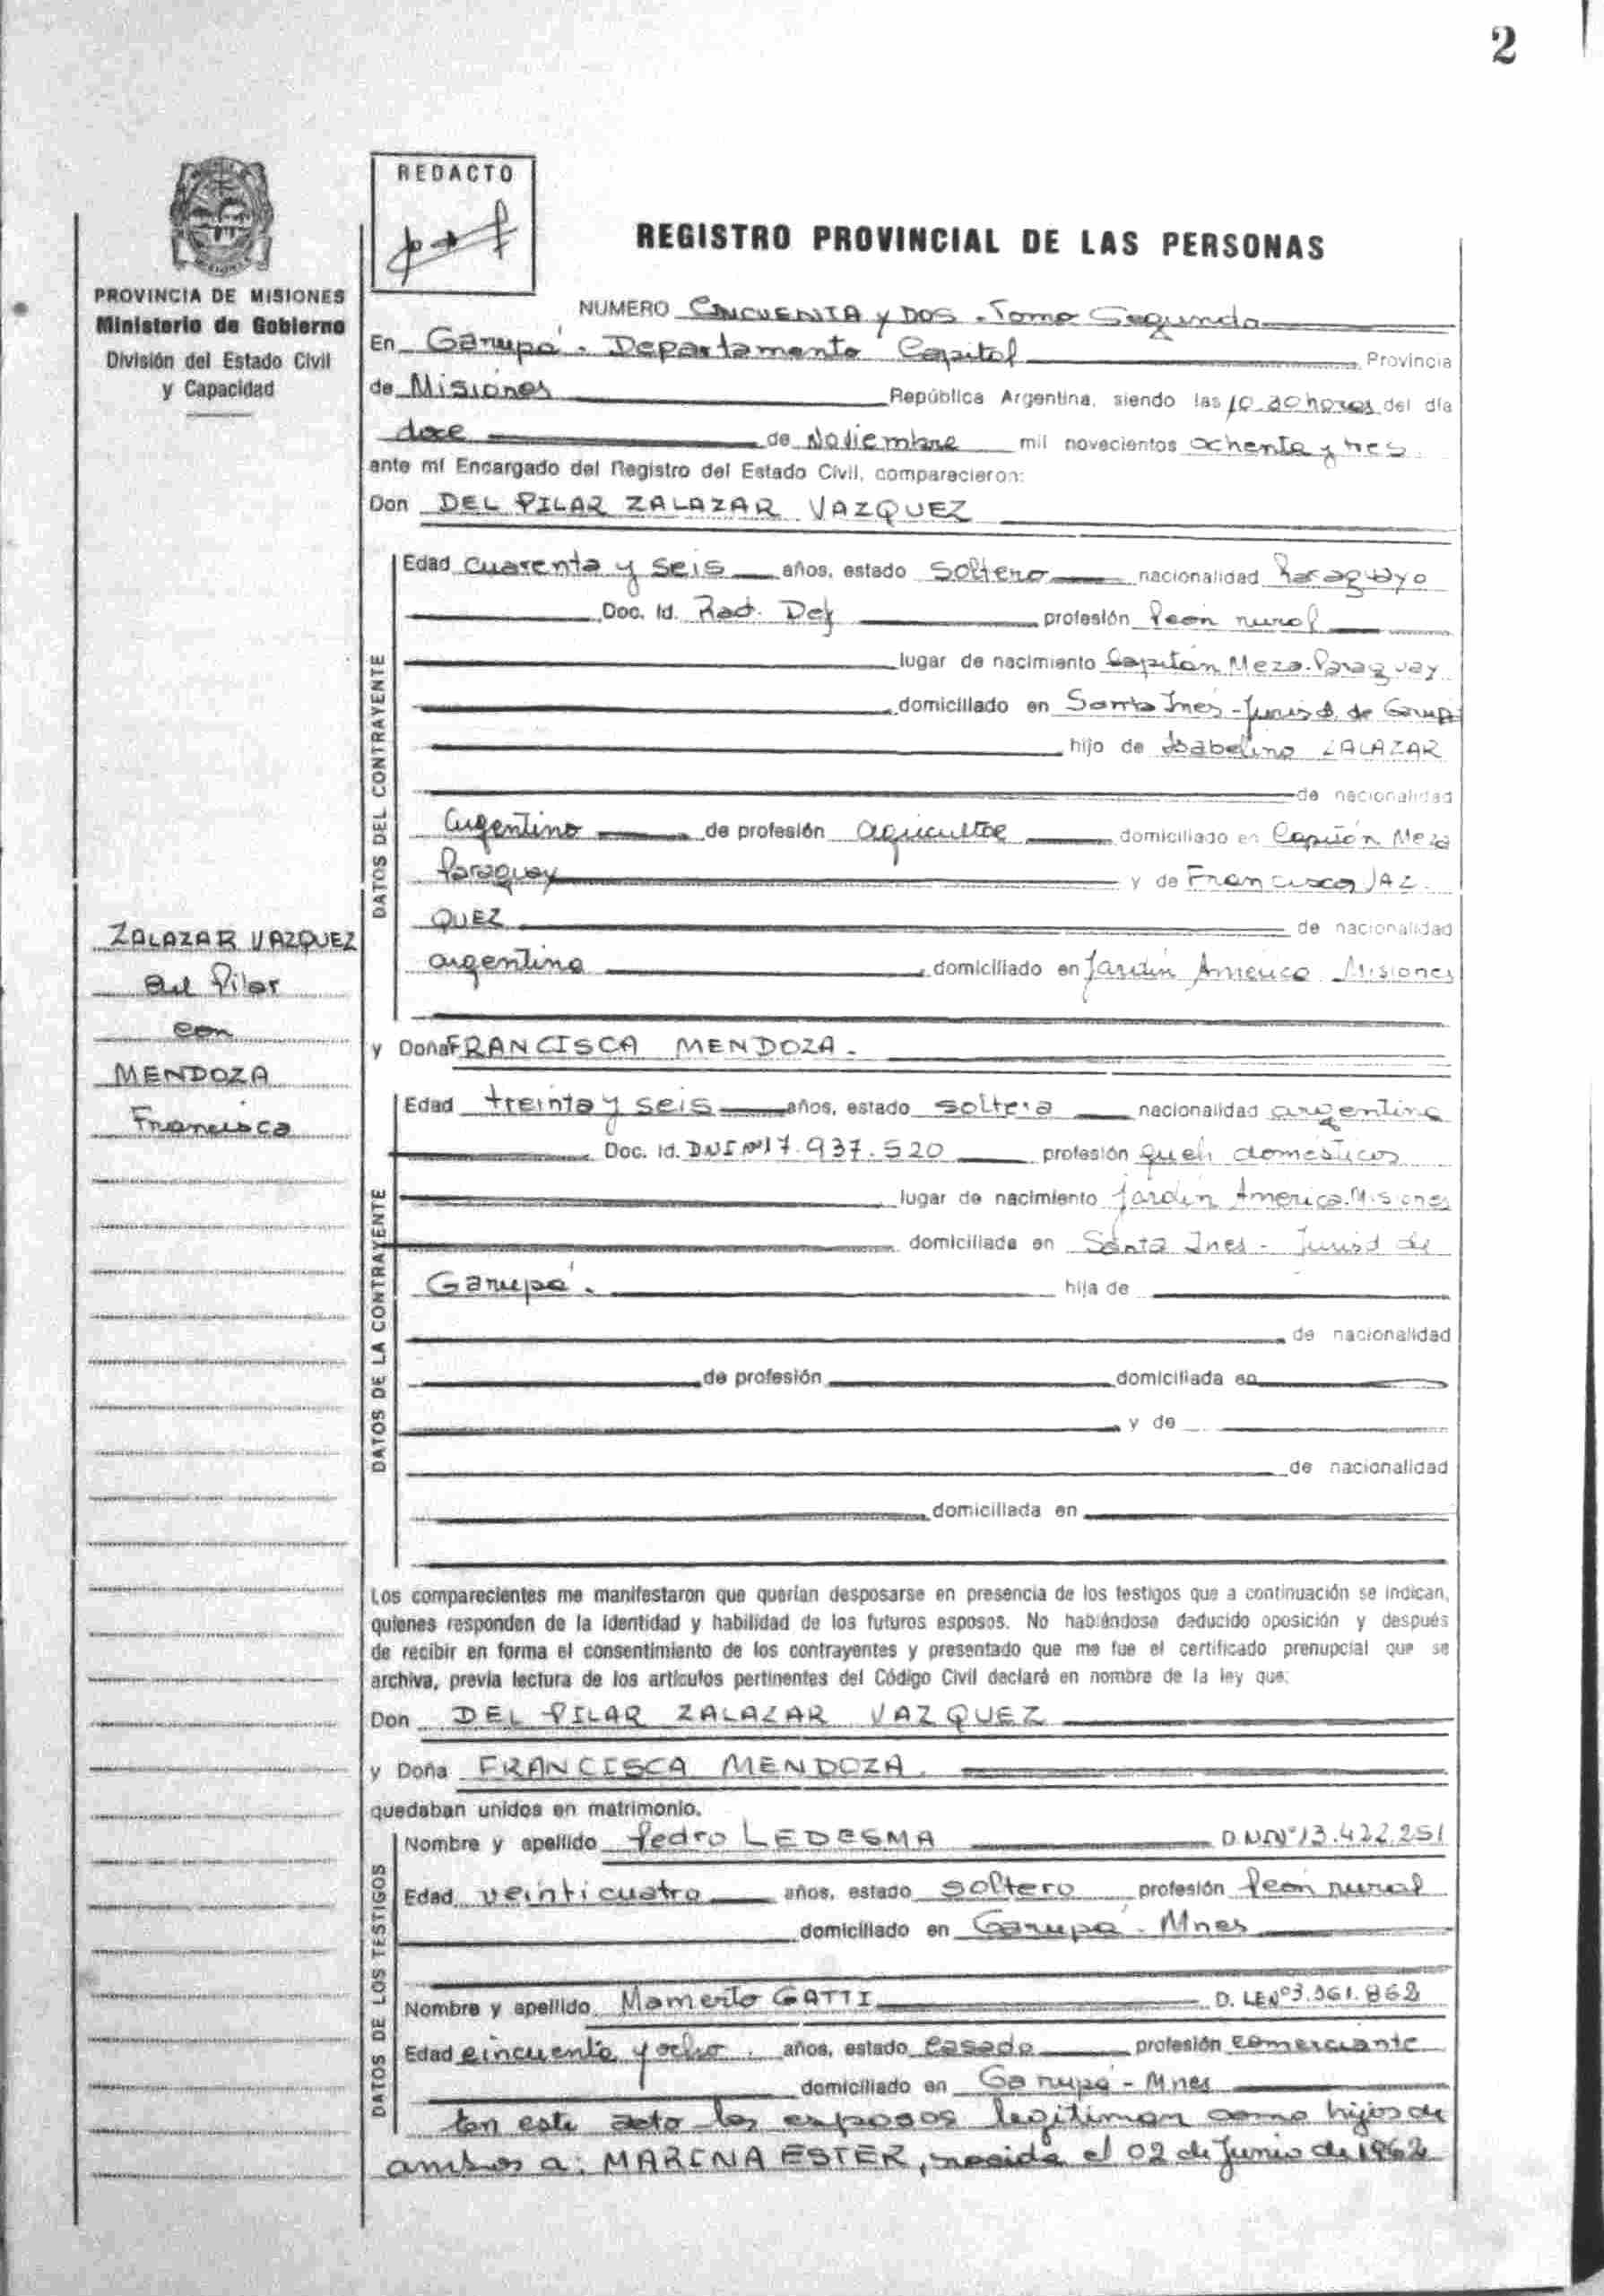 2
REDACTO
REGISTRO PROVINCIAL DE LAS PERSONAS
PROVINCIA DE MISIONES
Ministerio de Gobierno
División del Estado Civil
y Capacidad
NUMERO CINCUENTA y DOS - Tomo Segundo
En Garupá - Departamento Capital Provincia
de Misiones República Argentina, siendo las horas del día
doce de Noviembre mil novecientos ochenta y tres
ante mí Encargado del Registro del Estado Civil, comparecieron:
Don DEL PILAR ZALAZAR VAZQUEZ
DATOS DEL CONTRAYENTE
Edad cuarenta y seis años, estado soltero nacionalidad Paraguayo
Doc. Id. profesión Peón rural
lugar de nacimiento Capitán Meza-Paraguay
domiciliado en Santa Inés - Jurisd. de
hijo de Isabelino ZALAZAR
de nacionalidad
argentino de profesión agricultor domiciliado en Capitán Meza
Paraguay y de Francisca VAZ
QUEZ de nacionalidad
argentina domiciliado en Jardín América Misiones
ZALAZAR VAZQUEZ
del Pilar
con
MENDOZA
Francisca
y Doña FRANCISCA MENDOZA.
DATOS DE LA CONTRAYENTE
Edad treinta y seis años, estado soltera nacionalidad argentina
Doc. Id. DNI Nº 17.937.520 profesión domésticos
lugar de nacimiento Jardín América. Misiones
domiciliada en Santa Inés - Jurisd de
Garupá. hija de
de nacionalidad
de profesión domiciliada en
y de
de nacionalidad
domiciliada en
Los comparecientes me manifestaron que querían desposarse en presencia de los testigos que a continuación se indican,
quienes responden de la identidad y habilidad de los futuros esposos. No habiéndose deducido oposición y después
de recibir en forma el consentimiento de los contrayentes y presentado que me fue el certificado prenupcial que se
archiva, previa lectura de los artículos pertinentes del Código Civil declaré en nombre de la ley que:
Don DEL PILAR ZALAZAR VAZQUEZ
y Doña FRANCISCA MENDOZA.
quedaban unidos en matrimonio.
DATOS DE LOS TESTIGOS
Nombre y apellido Pedro LEDESMA D.N.I Nº 13.422.251
Edad veinticuatro años, estado soltero profesión Peón rural
domiciliado en Garupá - Mnes
Nombre y apellido Mamerto GATTI D. LE Nº
Edad cincuenta y ocho. años, estado casado profesión comerciante
domiciliado en Garupá - Mnes
En este acto los esposos legitiman como hijos de
ambos a: MARINA ESTER, nacida el 02 de Junio de